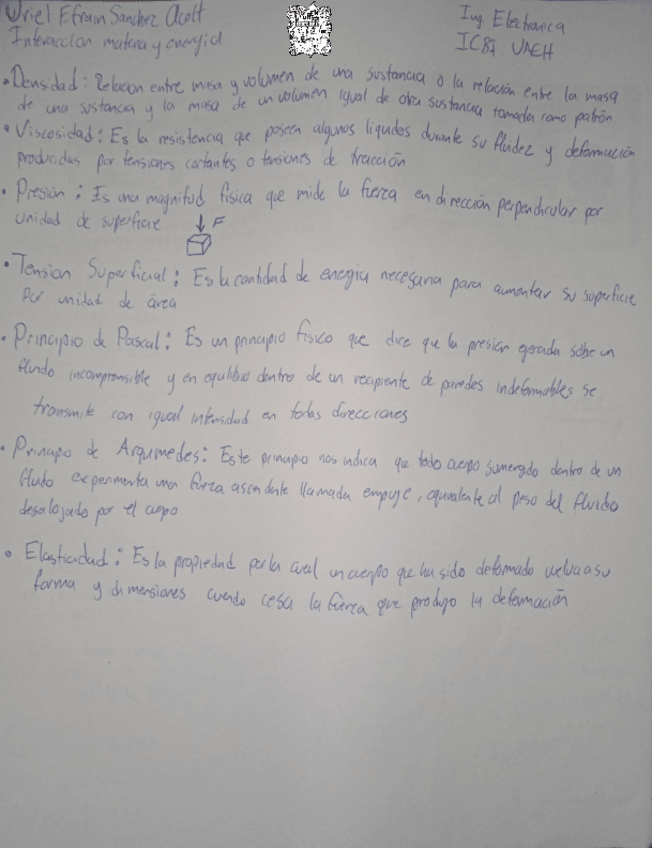 Uriel Efrain Sanchez Acolt
Ing. Electronica
Interaccion materia y energia
ICBI UAEH
• Densidad: Relacion entre masa y volumen de una sustancia o la relación entre la masa
de una sustancia y la masa de un volumen igual de otra sustancia tomada como patrón
• Viscosidad: Es la resistencia que poseen algunos liquidos durante su fluidez y deformación
producidas por tensiones cortantes o tensiones de tracción
• Presion: Es una magnitud fisica que mide la fuerza en dirección perpendicular por
unidad de superficie
F
• Tension Superficial: Es la cantidad de energia necesaria para aumentar su superficie
por unidad de área
• Principio de Pascal: Es un principio fisico que dice que la presion gerada sobre un
fluido incomprensible y en equilibrio dentro de un recipiente de paredes indeformables se
transmite con igual intensidad en todas direcciones
• Principo de Arqumedes: Este principio nos indica que todo cuerpo sumergido dentro de un
fluido experimenta una fuerza ascendente llamada empuje, equivalente al peso del fluido
desalojado por el cuerpo
• Elasticidad: Es la propiedad por la cual un cuerpo que ha sido deformado vuelva a su
forma y dimensiones cuando cesa la fuerza que produjo la deformación